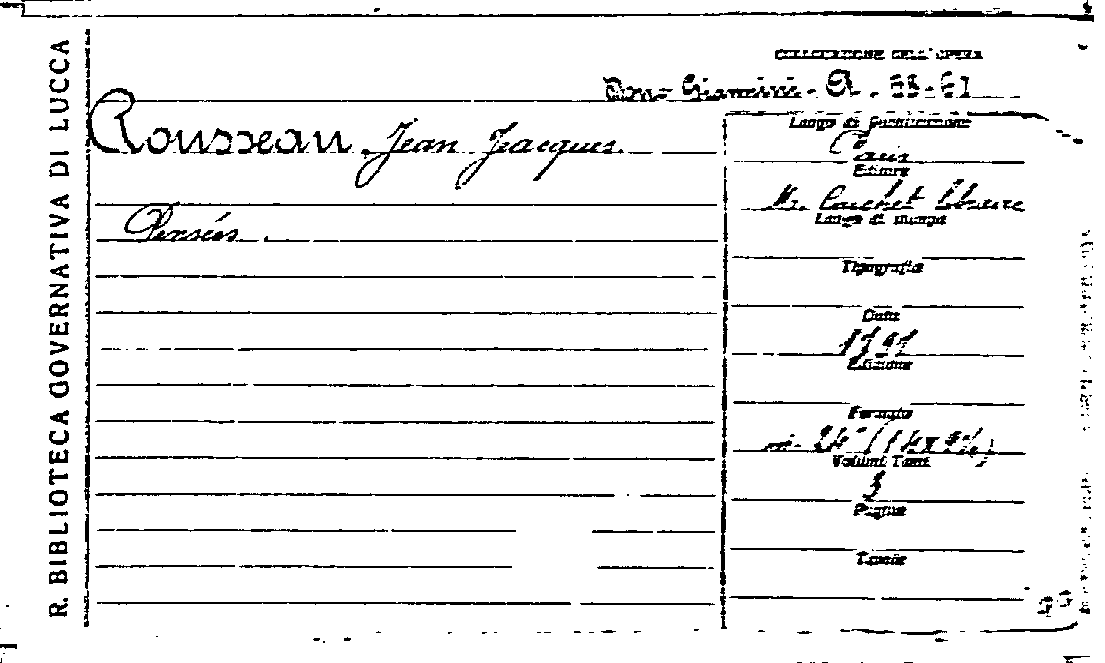 R. BIBLIOTECA GOVERNATIVA DI LUCCA
COLLOCAZIONE DELL'OPERA
Rousseau Jean Jacques.
Pensées.
Luogo di Pubblicazione
Paris
Editore
Luogo di stampa
Tipografia
Data
Edizione
Formato
in-24°
Volumi Tomi
3
Pagine
Tavole